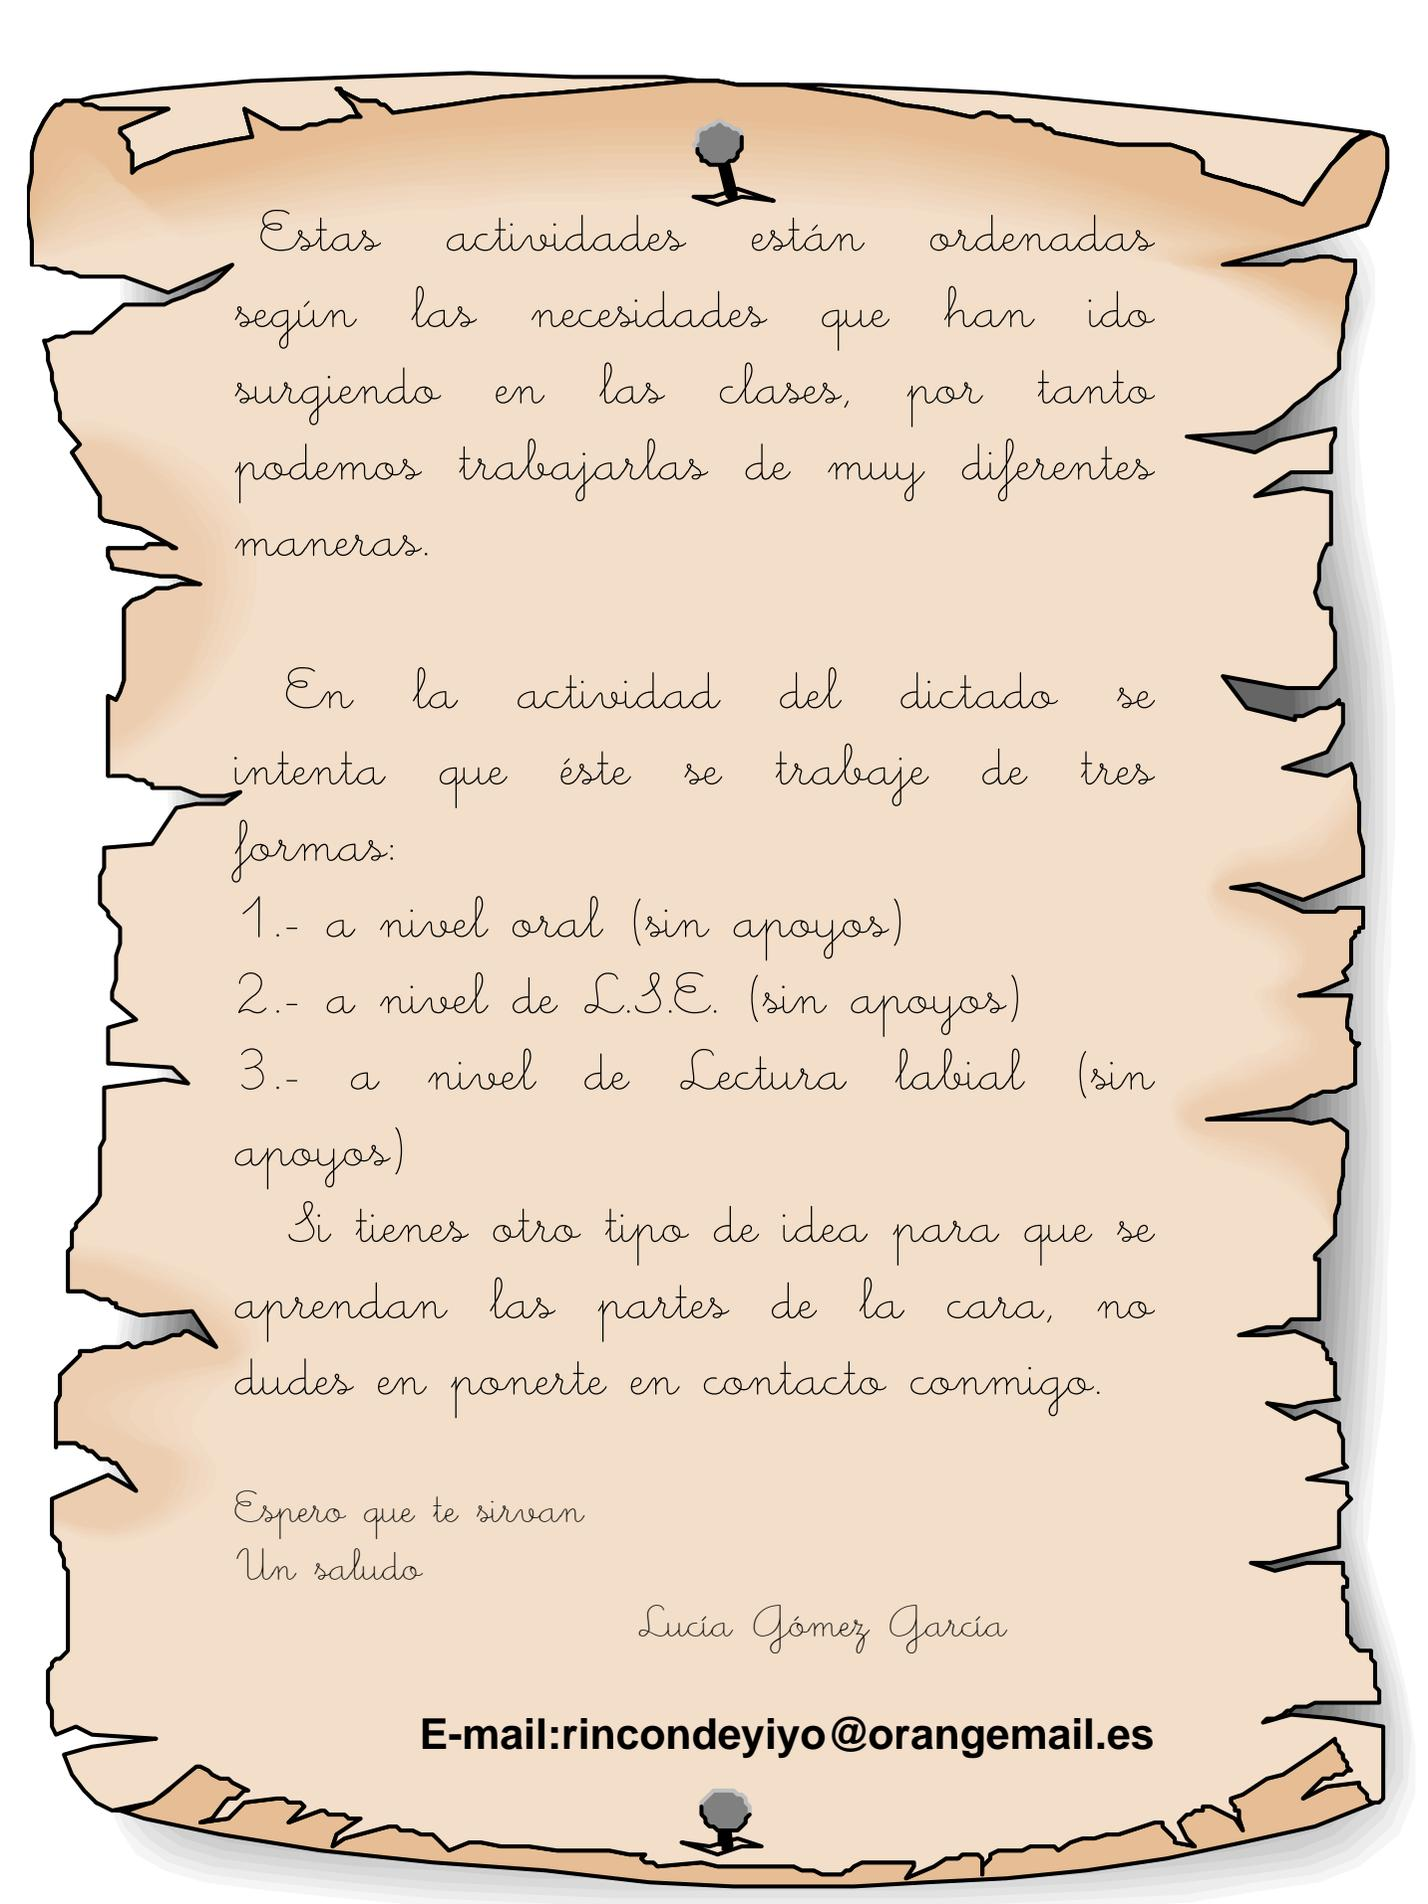 Estas actividades están ordenadas
según las necesidades que han ido
surgiendo en las clases, por tanto
podemos trabajarlas de muy diferentes
maneras.
En la actividad del dictado se
intenta que éste se trabaje de tres
formas:
1.- a nivel oral (sin apoyos)
2.- a nivel de L.S.E. (sin apoyos)
3.- a nivel de Lectura labial (sin
apoyos)
Si tienes otro tipo de idea para que se
aprendan las partes de la cara, no
dudes en ponerte en contacto conmigo.
Espero que te sirvan
Un saludo
Lucía Gómez García
E-mail:rincondeyiyo@orangemail.es